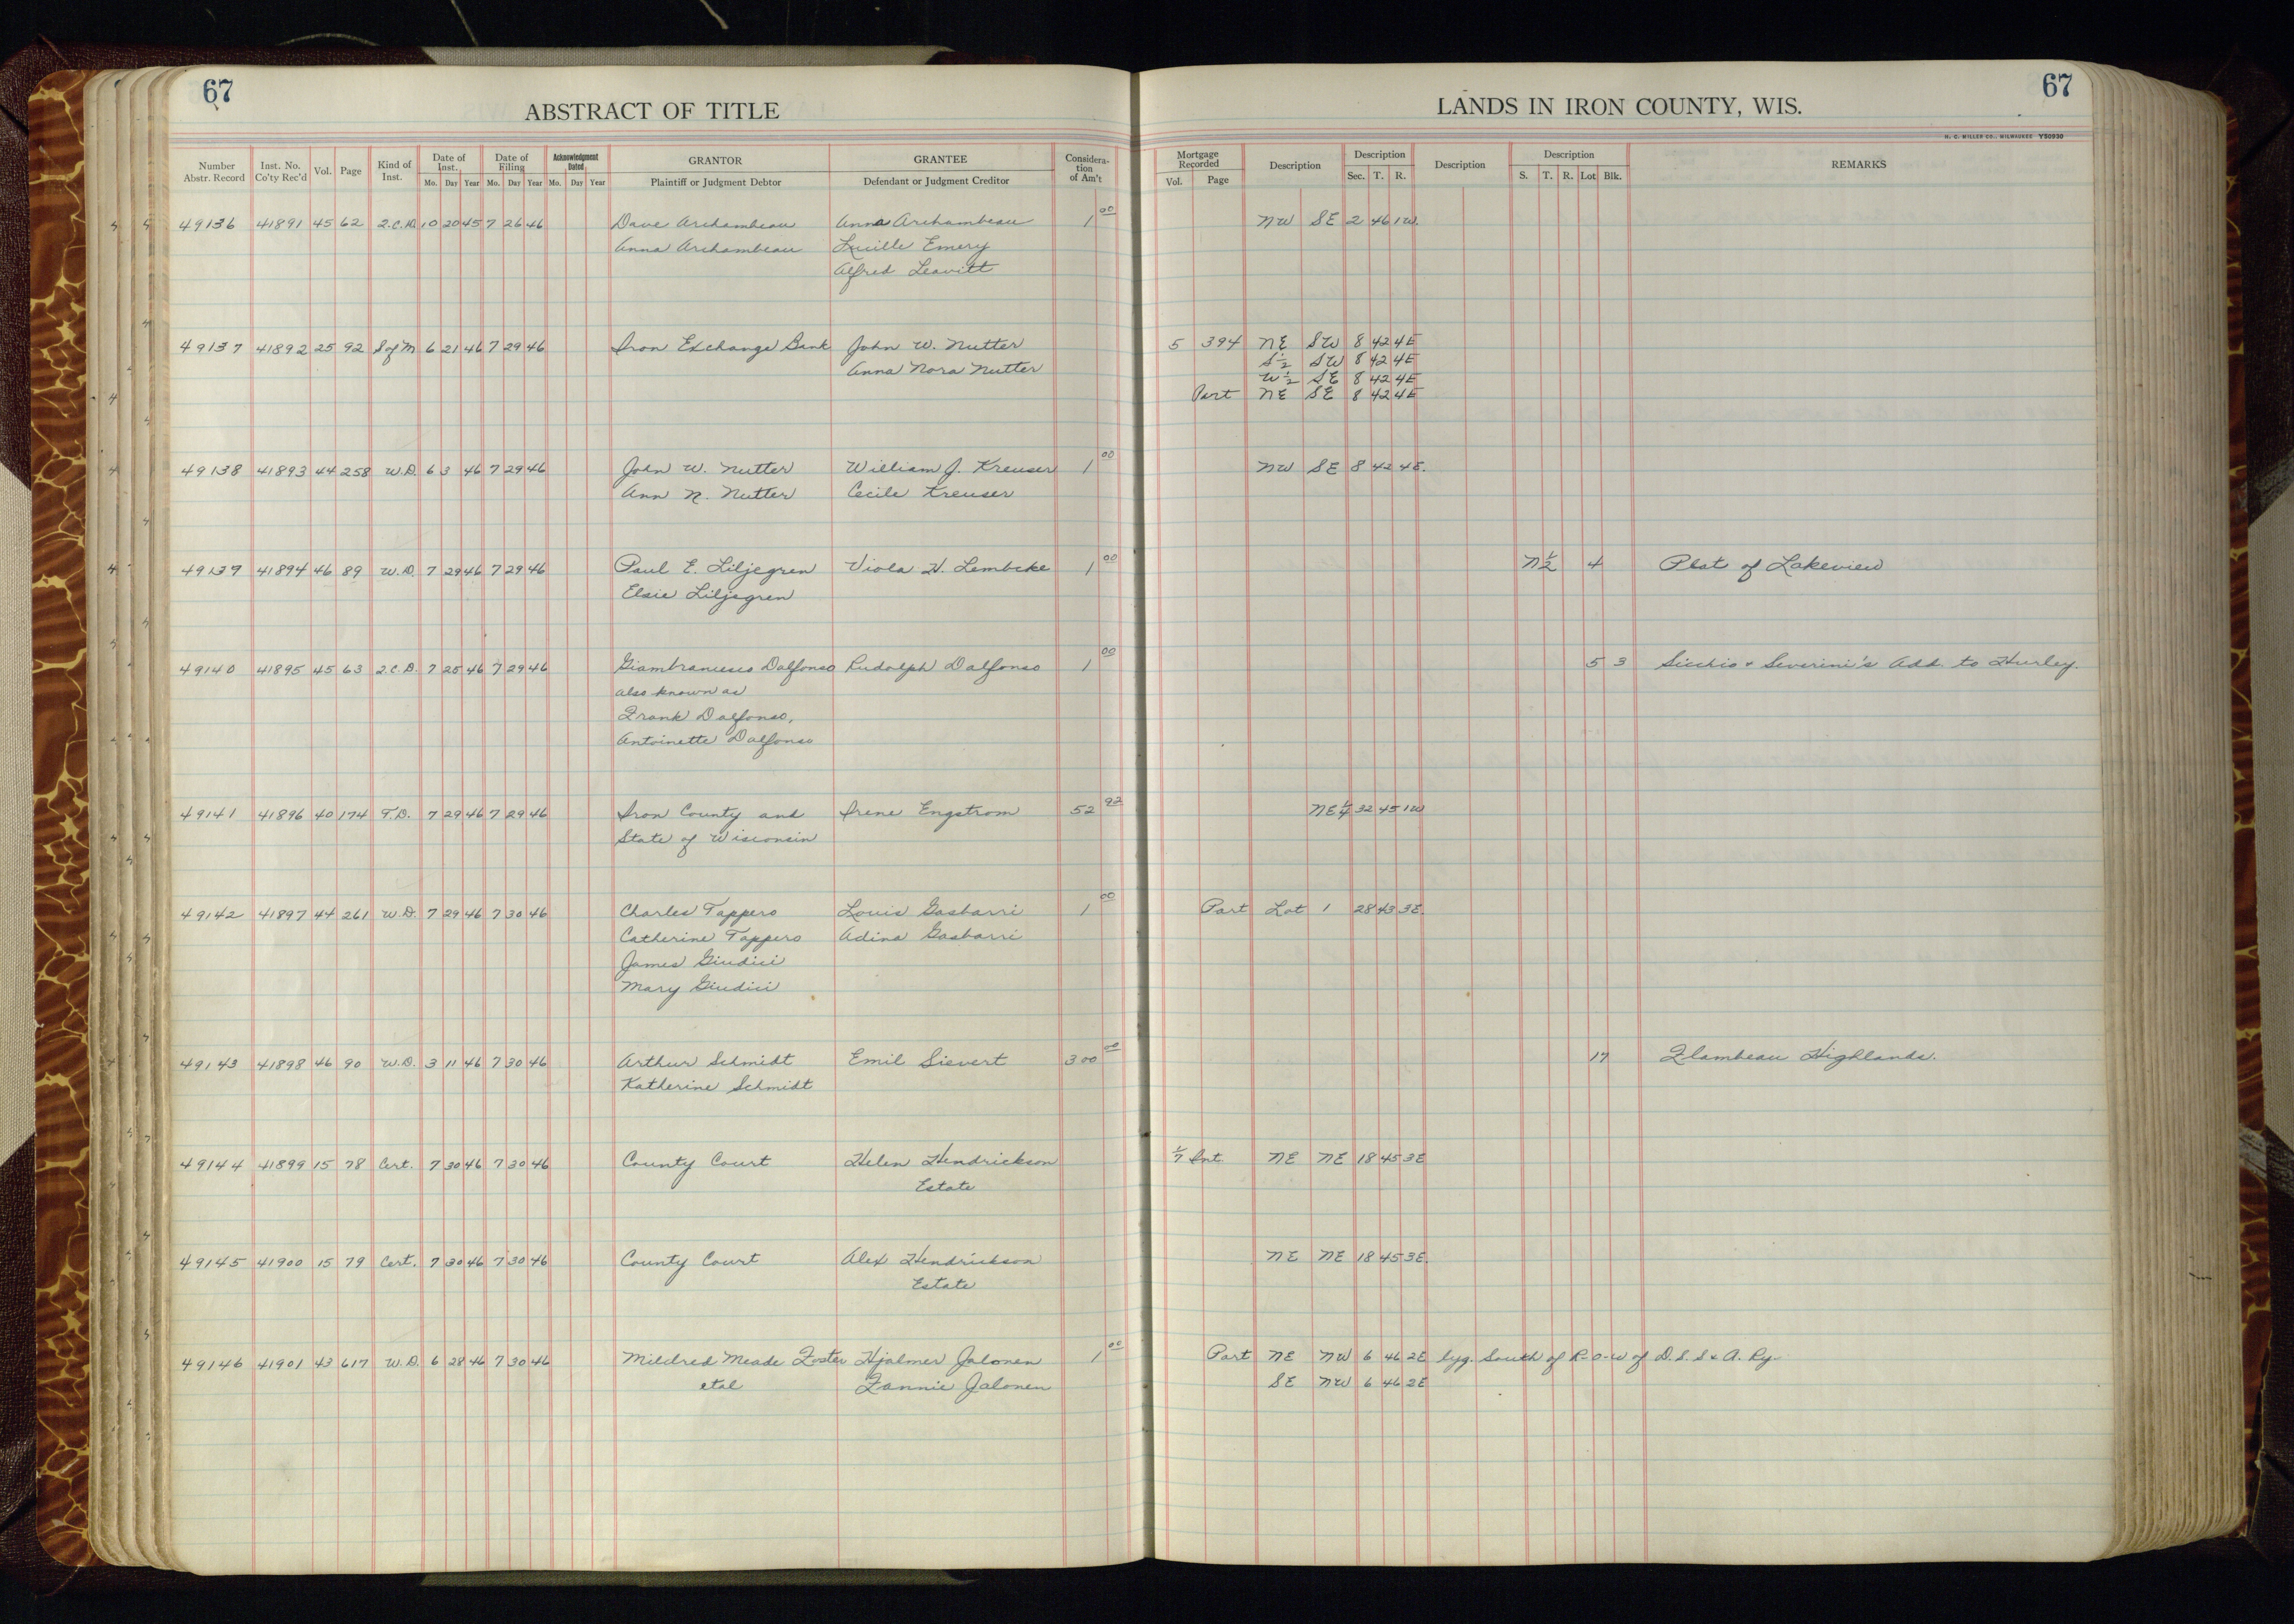 67
ABSTRACT OF TITLE
LANDS IN IRON COUNTY, WIS.
67
H. C. MILLER CO., MILWAUKEE Y50930
Number Abstr. Record Inst. No. Co'ty Rec'd Vol. Page Kind of Inst. Date of Inst. Mo. Day Year Date of Filing Mo. Day Year Acknowledgment Dated Mo. Day Year GRANTOR Plaintiff or Judgment Debtor GRANTEE Defendant or Judgment Creditor Considera-tion of Am't Mortgage Recorded Vol. Page Description Description Sec. T. R. Description Description S. T. R. Lot Blk. REMARKS
49136 41891 45 62 2.C.D. 10 20 45 7 26 46 Dave Archambeau Anna Archambeau 1 00 NW SE 2 46 1W.
Anna Archambeau Lucille Emery
Alfred Leavitt
49137 41892 25 92 S of M 6 21 46 7 29 46 Iron Exchange Bank John W. Nutter 5 394 NE SW 8 42 4E
S 1/2 SW 8 42 4E
Anna Nora Nutter W 1/2 SE 8 42 4E
Part NE SE 8 42 4E
49138 41893 44 258 W.D. 6 3 46 7 29 46 John W. Nutter William J. Kreuser 1 00 NW SE 8 42 4E.
Ann N. Nutter Cecile Kreuser
49139 41894 46 89 W.D. 7 29 46 7 29 46 Paul E. Liljegren Viola H. Lembcke 1 00 N 1/2 4 Plat of Lakeview
Elsie Liljegren
49140 41895 45 63 2.C.D. 7 25 46 7 29 46 Giambrancesco Dalfonso Rudolph Dalfonso 1 00 5 3 Sicchio & Severini's Add. to Hurley.
also known as
Frank Dalfonso,
Antoinette Dalfonso
49141 41896 40 174 T.D. 7 29 46 7 29 46 Iron County and Irene Engstrom 52 92 NE 1/4 32 45 1W
State of Wisconsin
49142 41897 44 261 W.D. 7 29 46 7 30 46 Charles Tappero Louis Gasbarri 1 00 Part Lot 1 28 43 3E.
Catherine Tappero Adina Gasbarri
James Giudici
Mary Giudici
49143 41898 46 90 W.D. 3 11 46 7 30 46 Arthur Schmidt Emil Sievert 300 00 17 Flambeau Highlands.
Katherine Schmidt
49144 41899 15 78 Cert. 7 30 46 7 30 46 County Court Helen Hendrickson 1/7 Int. NE NE 18 45 3E
Estate
49145 41900 15 79 Cert. 7 30 46 7 30 46 County Court Alex Hendrickson NE NE 18 45 3E.
Estate
49146 41901 43 617 W.D. 6 28 46 7 30 46 Mildred Meade Foster Hjalmer Jalonen 1 00 Part NE NW 6 46 2E lyg. South of R-O-W of D.S.S & A. Ry.
etal Fannie Jalonen SE NW 6 46 2E